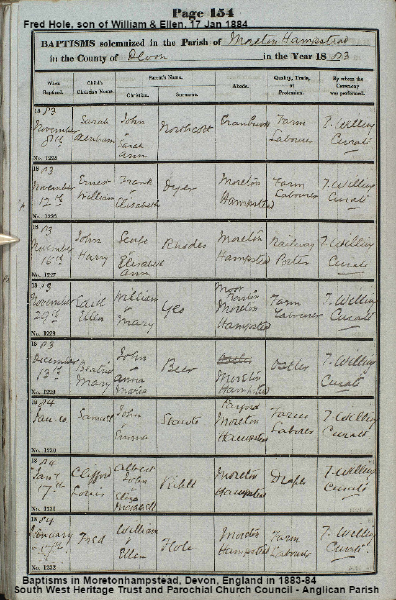 Page 154
Fred Hole, son of William & Ellen, 17 Jan 1884
BAPTISMS solemnized in the Parish of Moreton Hampstead
in the County of Devon in the Year 18 83
When Baptized. Child's Christian Name. Parent's Name. Christian. Surname. Abode. Quality, Trade, or Profession. By whom the Ceremony was performed.
18 83
November 8th
No. 1225
Sarah
John & Sarah Ann
Northcott
Farm Labourer
Curate
18 83
November 12th
No. 1226
Ernest William
Frank & Elizabeth
Dyer
Moreton Hampstead
Farm Labourer
Curate
18 83
November 16th
No. 1227
John Harry
George & Elizabeth Ann
Rhodes
Moreton Hampsted
Railway Porter
Curate
November 29th
No. 1228
Edith Ellen
William & Mary
Yeo
Moreton Hampsted
Farm Labourer
Curate
18 83
December 13th
No. 1229
Beatrice Mary
John & Anna Maria
Beer
Moreton Hampsted
Ostler
Curate
18 84
No. 1230
Samuel
John & Emma
Moreton Hampsted
Farm Labourer
Curate
18 84
Jany 17th
No. 1231
Clifford Louis
Albert John &
Moreton Hampsted
Draper
Curate
18 84
January 17th
No. 1232
Fred
William & Ellen
Hole
Moreton Hampsted
Farm Labourer
Curate
Baptisms in Moretonhampstead, Devon, England in 1883-84
South West Heritage Trust and Parochial Church Council - Anglican Parish